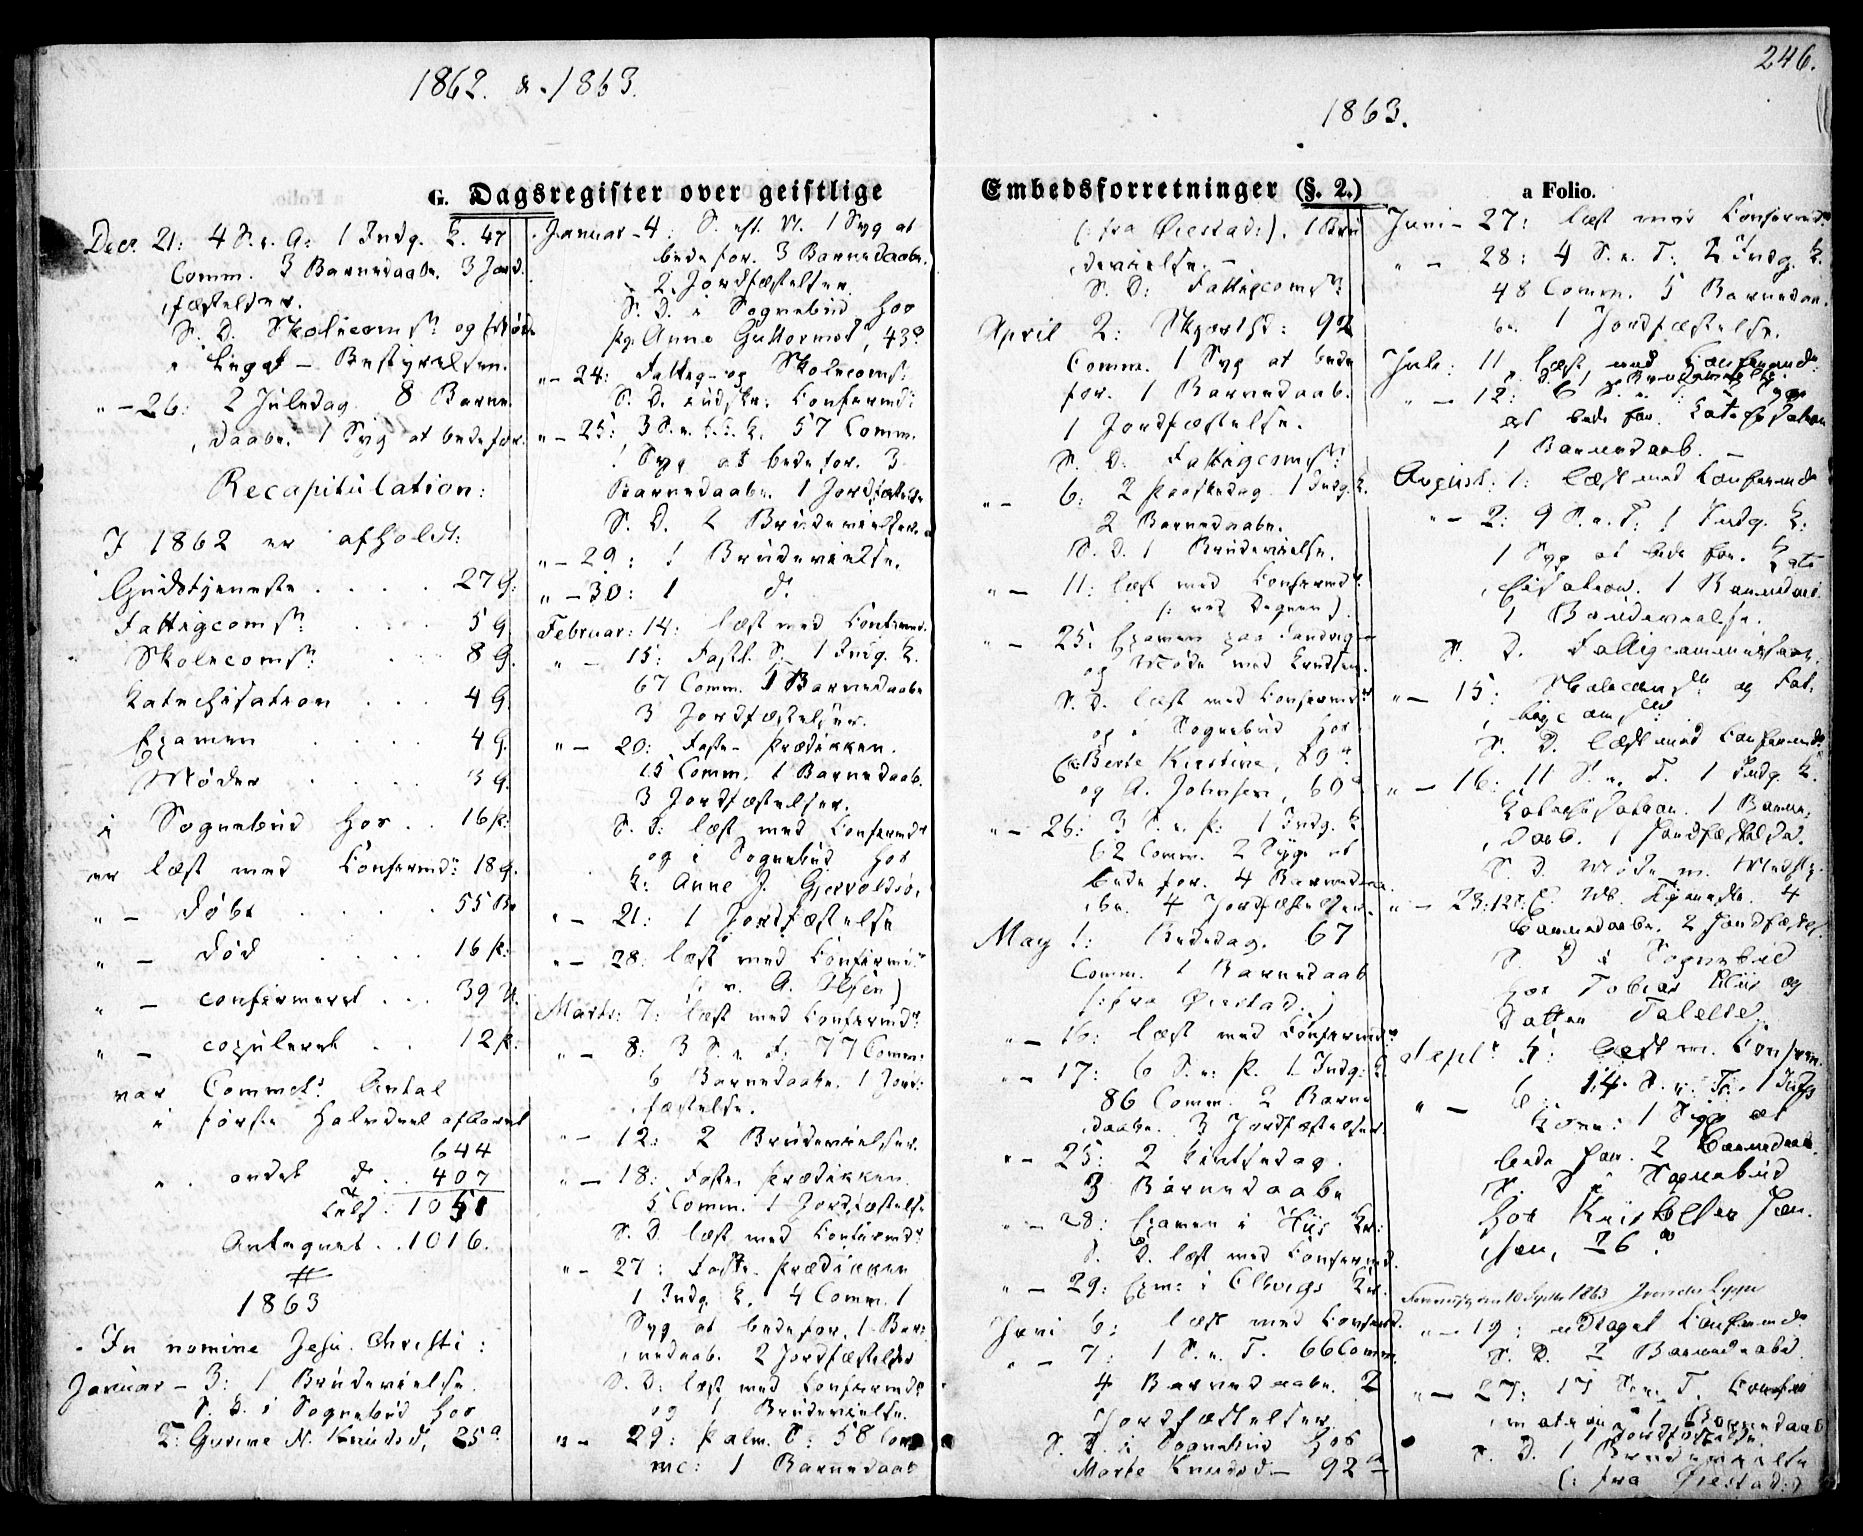 1862. & 1863.
G. Dagsregister over geistlige
Decr. 21: 4 S. i A: 1 Indg. K. 47
Comm. 3 Barnedaabe. 3 Jord-
fæstelser.
S. D. Skolecomsn og
Legat - Bestyrelsen.
" - 26: 2 Juledag. 8 Barne-
daabe. 1 Syg at bede for.
Recapitulation:
I 1862 er afholdt:
Gudstjeneste . . . . 27 G:
Fattigcomsn . . . . 5 G.
Skolecomsn . . . 8 G.
Katechisation . . . 4 G.
Examen . . . . 4 G.
Møder . . . . 3 G.
i Sognebud hos . . 16 P:
er læst med Confirmd: 18 G.
" - døbt . . . . 55 B
" - død . . . . 16 P:
" - confirmeret . . . 39
" - copuleret . . 12 P:
var Commts. Antal
i første Halvdeel af Aaret
644
" andet d. . . 407
Tils: 1051
Antegnet . . 1016.
1863
In nomine Jesu Christi:
Januar - 3: 1 Brudevielse.
S. D. i Sognebud hos
E: Gurine N. Knudsd, 25 a
Januar - 4: S. eft. N. 1 Syg at
bede for. 3 Barnedaabe.
2 Jordfæstelser.
S. D. i Sognebud hos
Pg. Anne Guttormsd, 43 a
" - 24: Fattig- og Skolecoms:
S. D. indskr: Confirmd:
" - 25: 3 S. e. H. 3. K. 57 Comm.
1 Syg at bede for. 3
Barnedaabe. 1 Jordfæstelse
S. D. 2 Brudevielser.
" - 29: 1 Brudevielse.
" - 30: 1 d.
Februar: 14: læst med Confirmd.
" - 15: Fastl. S. 1 Indg. K.
67 Comm. 1 Barnedaabe
3 Jordfæstelser.
" - 20: Faste- Prædikken.
15 Comm. 1 Barnedaab.
3 Jordfæstelser.
S. D: læst med Confirmdr
og i Sognebud hos
K: Anne J. Gjervoldsø,
" - 21: 1 Jordfæstelse
" - 28: læst med Confirmdr
(: v. A. Olsen)
Marts: 7: læst med Confirmdr
" - 8: 3 S. i F: 77 Comm:
6 Barnedaabe. 1 Jord-
fæstelse.
" - 12: 2 Brudevielser.
" - 18: Faste- Prædikken.
5 Comm. 1 Jordfæstelse
S. D. læst med Confirmdr
" - 27: Faste- Prædikken
1 Indg. K. 4 Comm. 1
Syg at bede for. 1 Bar-
nedaab. 2 Jordfæstelser
S. D: læst med Confirmdr
og 1 Brudevielse.
" - 29: Palm. S: 58 Com
me: 1 Barnedaab
246.
1863.
Embedsforretninger (§. 2.)
a Folio.
(: fra Øiestad:). 1 Bru-
devielse. -
S. D: Fattigcomsn:
April 2: Skjærtsd: 92
Comm. 1 Syg at bede
for. 1 Barnedaab.
1 Jordfæstelse.
S. D. Fattigcomsn:
" - 6: 2 Paaskedag. 1 Indg. K.
2 Barnedaabe.
S. D. 1 Brudevielse.
" - 11: læst med Confirmdr.
(: ved Degnen).
" - 25: Examen paa Landvig
og Møde med
S. D. læst med Confirmdr
og i Sognebud hos
E: Berte Kirstine, 80 a
og A. Johnsen, 60 a
" - 26: 3 S. e. P: 1 Indg. K.
62 Comm. 2 Syge at
bede for. 4 Barnedaa-
be. 4 Jordfæstelser.
May 1: Bededag. 67
Comm. 1 Barnedaab
(: fra Øiestad:)
" - 16: læst med Confirmdr
" - 17: 6 S. e: P. 1 Indg: K.
86 Comm. 2 Barne-
daabe. 3 Jordfæstelser.
" - 25: 2 Pintsedag.
3 Barnedaabe
" - 28: Examen i Hiis Kr:
S. D. læst med Confirmd.
" - 29: Exm: i Elvigs Kr.
Juni 6: læst med Confirmd.
" - 7: 1 S. e. T. 66 Comm.
4 Barnedaabe. 2
Jordfæstelser.
S. D. i Sognebud hos
Marte Knudsd - 92 a
Juni - 27: læst med Confirmdr
" - 28: 4 S. e. T: 2 Indg. K.
48 Comm. 5 Barnedaa-
be. 1 Jordfæstelse.
Juli: 11 læst med Confirmd:
S. D. 1 Brudevielse.
" - 12: 6 S. e. T: 1 Syg
at bede for. Katechisation
1 Barnedaab. -
August: 1: læst med Confirmd
" - 2: 9 S. e. T: 1 Indg. K:
1 Syg at bede for. Kate-
chisation. 1 Barnedaab.
1 Brudevielse.
S. D. Fattigcommission.
" - 15: Skolecomsn og Fat-
tigcomsn.
S. D. læst med Confirmd:
" - 16: 11 S. e. T. 1 Indg. K.
Katechisation. 1 Barne-
daab. 1 Jordfæstelse.
S. D. Møde m.
" - 23: 12 S. 4
Barnedaabe. 2 Jordfæstel.
S. D i Sognebud
hos Tobias Hiis og
Datter Talette.
Septr 5: læst m. Confirm.
" - 6: 14 S. e. Tr. 1 Indg
Kone: 1 Syg at
bede for. 2 Barnedaab.
S. D i Sognebud
hos Kristoffer Jen-
sen, 26 a
10 Septbr 1863
" - 19: udtaget Confirmd:
S. D. 2 Barnedaabe
" - 27: 17 S. e. T. Confir-
mation. 1 Barnedaab
1 Jordfæstelse.
S. D. 1 Brudevielse
(: fra Øiestad:)